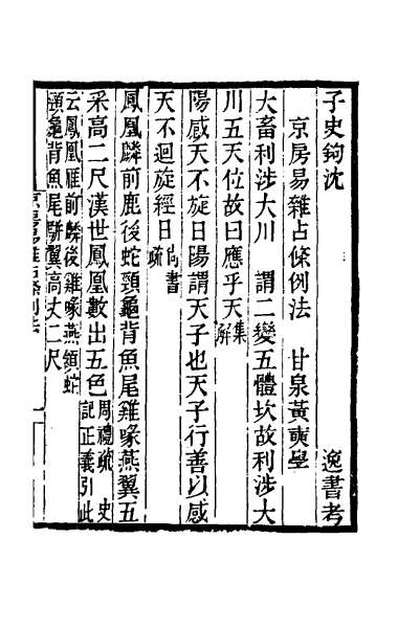 子史鉤沈　逸書考
京房易雜占條例法　甘泉黃奭學
大畜利涉大川　謂二變五體坎故利涉大
川五天位故曰應乎天集解
陽感天不旋日陽謂天子也天子行善以感
天不迴旋經日尚書疏
鳳凰麟前鹿後蛇頸龜背魚尾雞喙燕翼五
采高二尺漢世鳳凰數出五色周禮疏　史記正義引此
云鳳凰雁前麟後雞喙燕頷蛇
頸龜背魚尾駢翼高丈二尺
京房易雜占條例法　一